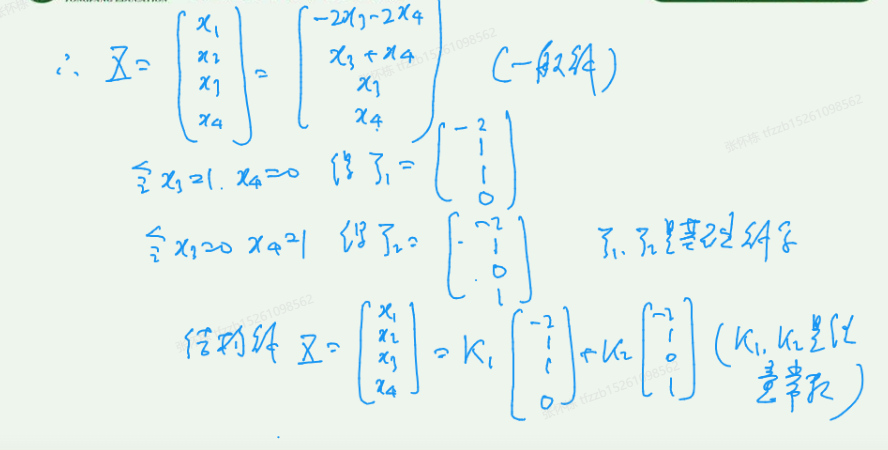 ∴ X = [x₁ x₂ x₃ x₄] = [-2x₃-2x₄ x₃+x₄ x₃ x₄] (一般解)
令x₃=1. x₄=0 得 ξ₁ = [-2 1 1 0]
令x₃=0 x₄=1 得 ξ₂ = [-2 1 0 1] ξ₁. ξ₂是基础解系
结构解 X = [x₁ x₂ x₃ x₄] = K₁ [-2 1 1 0] + K₂ [-2 1 0 1] (K₁. K₂是任意常数)
张怀格 tfzzb15261098562